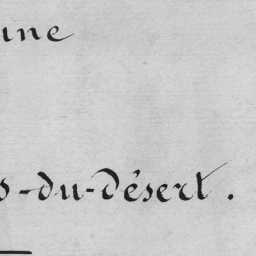 une
s-du-Désert.